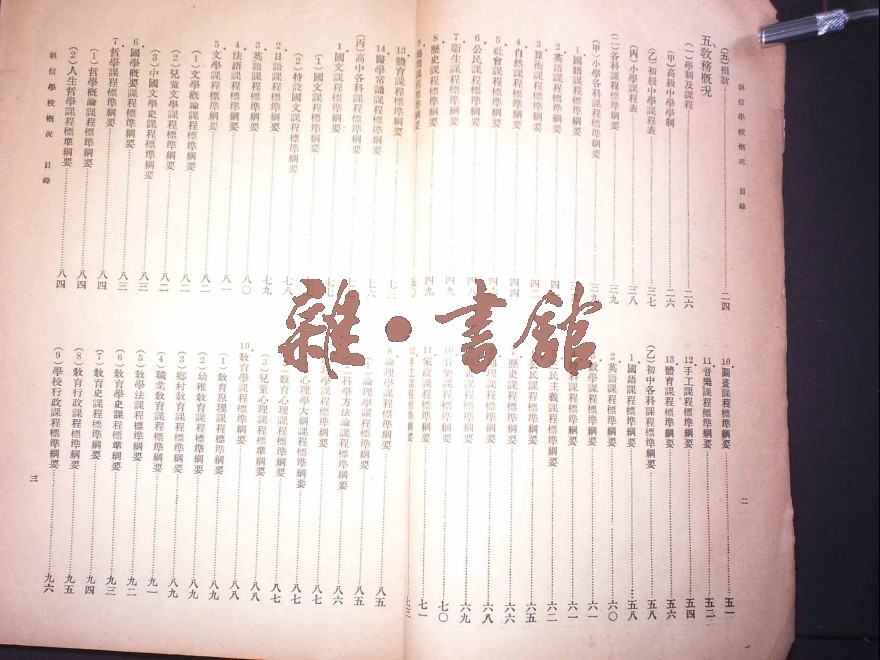 執信學校概況 目錄
二
(五)捐款……二四
五、敎務概況
(一)學制及課程……二六
(甲)高級中學學制……二六
(乙)初級中學課程表……三七
(丙)小學課程表……三八
(二)各科課程標準綱要……三九
(甲)小學各科課程標準綱要……三九
1 國語課程標準綱要……
2 英語課程標準綱要……
3 算術課程標準綱要……
4 自然課程標準綱要……
5 社會課程標準綱要……
6 公民課程標準綱要……
7 衞生課程標準綱要……四九
8 歷史課程標準綱要……四九
課程標準綱要……五〇
10 圖畫課程標準綱要……五一
11 音樂課程標準綱要……五二
12 手工課程標準綱要……五四
13 體育課程標準綱要……五六
(乙)初中各科課程標準綱要……五八
1 國語課程標準綱要……五八
2 英語課程標準綱要……六〇
數學課程標準綱要……六一
科課程標準綱要……六一
民主義課程標準綱要……六二
民課程標準綱要……六五
歷史課程標準綱要……六六
課程標準綱要……六八
課程標準綱要……六九
樂課程標準綱要……七〇
11 家政課程標準綱要……七一
12 手工課程標準綱要……七三
13 體育課程標準綱要……七三
14 醫學常識課程標準綱要……七六
(丙)高中各科課程標準綱要……
1 國文課程標準綱要……七七
(1)國文課程標準綱要……
(2)特設國文課程標準綱要……七八
2 日語課程標準綱要……七九
3 英語課程標準綱要……八〇
4 法語課程標準綱要……八一
5 文學課程標準綱要……八二
(1)文學概論課程標準綱要……八二
(2)兒童文學課程標準綱要……八二
(3)中國文學史課程標準綱要……八三
6 國學概要課程標準綱要……八三
7 哲學課程標準綱要……八四
(1)哲學概論課程標準綱要……八四
(2)人生哲學課程標準綱要……八四
執信學校概況 目錄
8 論理學課程標準綱要……八五
(1)論理學課程標準綱要……八五
科學方法論課程標準綱要……八六
學課程標準綱要……八七
心理學大綱課程標準綱要……八七
(2)敎育心理課程標準綱要……八八
(3)兒童心理課程標準綱要……八八
10 敎育學課程標準綱要……八八
(1)敎育原理課程標準綱要……八九
(2)幼稚敎育課程標準綱要……八九
(3)鄉村敎育課程標準綱要……八九
(4)職業敎育課程標準綱要……九一
(5)敎學法課程標準綱要……九二
(6)敎育學史課程標準綱要……九三
(7)敎育史課程標準綱要……九四
(8)敎育行政課程標準綱要……九五
(9)學校行政課程標準綱要……九六
三
雜·書館